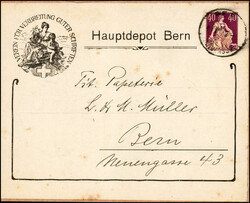 VEREIN FÜR VERBREITUNG GUTER SCHRIFTEN
Hauptdepot Bern
40 40
Tit. Papeterie
L. & M. Müller
Bern
Neuengasse 43